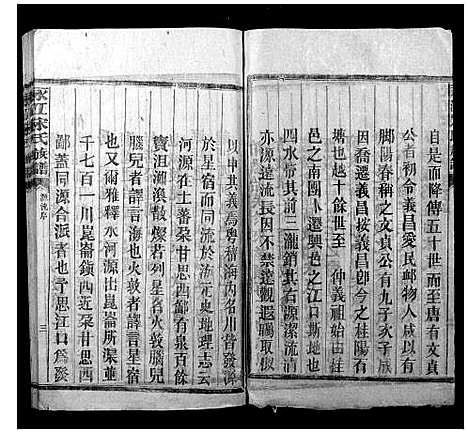 自是而降傳五十世而至唐有文貞
公者初令義昌愛民邮物人咸以有
脚陽春稱之文貞公有九子永子咸
因喬遷義昌按義昌卽今之桂陽有
塘也越十餘世至 仲義祖始由
邑之南團卜遷興邑之江口斯地也
四水帶其前二瀧銷其右源潔流清
亦源遠流長因不禁達觀遐矚取
以申其義焉粤稽海内名川皆發源
於星宿而同流於海元史地理志云
河源在土蕃朶甘思西鄙有泉百餘
竇沮洳渙散燦若列星名火敦腦兒
腦兒者譯言海火敦者譯言星宿
也又爾雅釋水河源出崑崙所渠並
千七百一川崑崙鎮西近朶甘思西
鄙蓋同源合派者也予思江口爲發
永江宋氏族譜
源流序
三